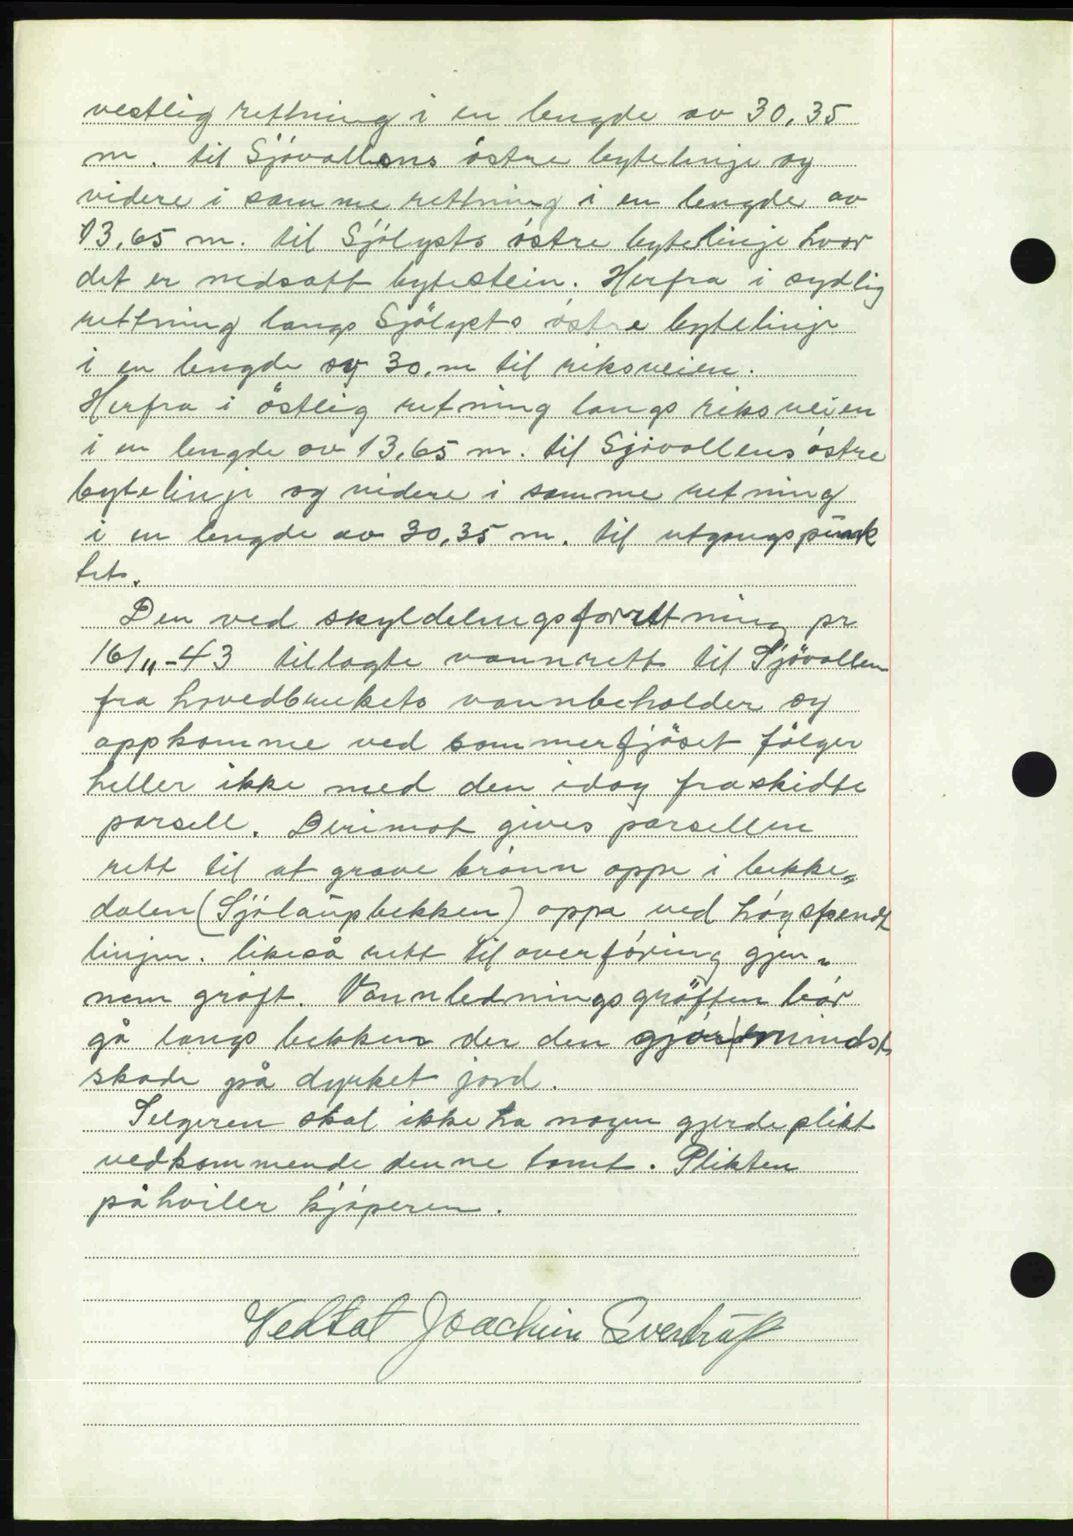 vestlig rettning i en lengde av 30,35
m. til Sjøvollens østre bytelinje og
videre i samme rettning i en lengde av
13,65 m. til Sjølysts østre bytelinje hvor
det er nedsatt bytestein. Herfra i sydlig
rettning langs Sjølysts østre bytelinje
i en lengde av 30.m til riksveien.
Herfra i östlig retning langs riksveien
i en lengde av 13,65 m. til Sjøvollens østre
bytelinje og videre i samme retning
i en lengde av 30,35 m. til utgangspunk
tet.
Den ved skyldelingsforrettning pr
16/11-43 tillagte vannrett til Sjøvollen
fra hovedbrukets vannbeholder og
oppkomme ved sommerfjöset følger
heller ikke med den idag fraskidte
parsell. Derimot gives parsellen
rett til at grave brønn oppe i bekke-
dalen (Sjølaupbekken) oppe ved høgspendt
linjen. likeså rett til overføring gjen-
nem grøft. Vannledningsgröften bør
gå langs bekken der den gjør mindst
skade på dyrket jord.
Selgeren skal ikke ha nogen gjerdeplikt
vedkommende denne tomt. Plikten
påhviler kjøperen.
Vedtat Joachim Sverdrup